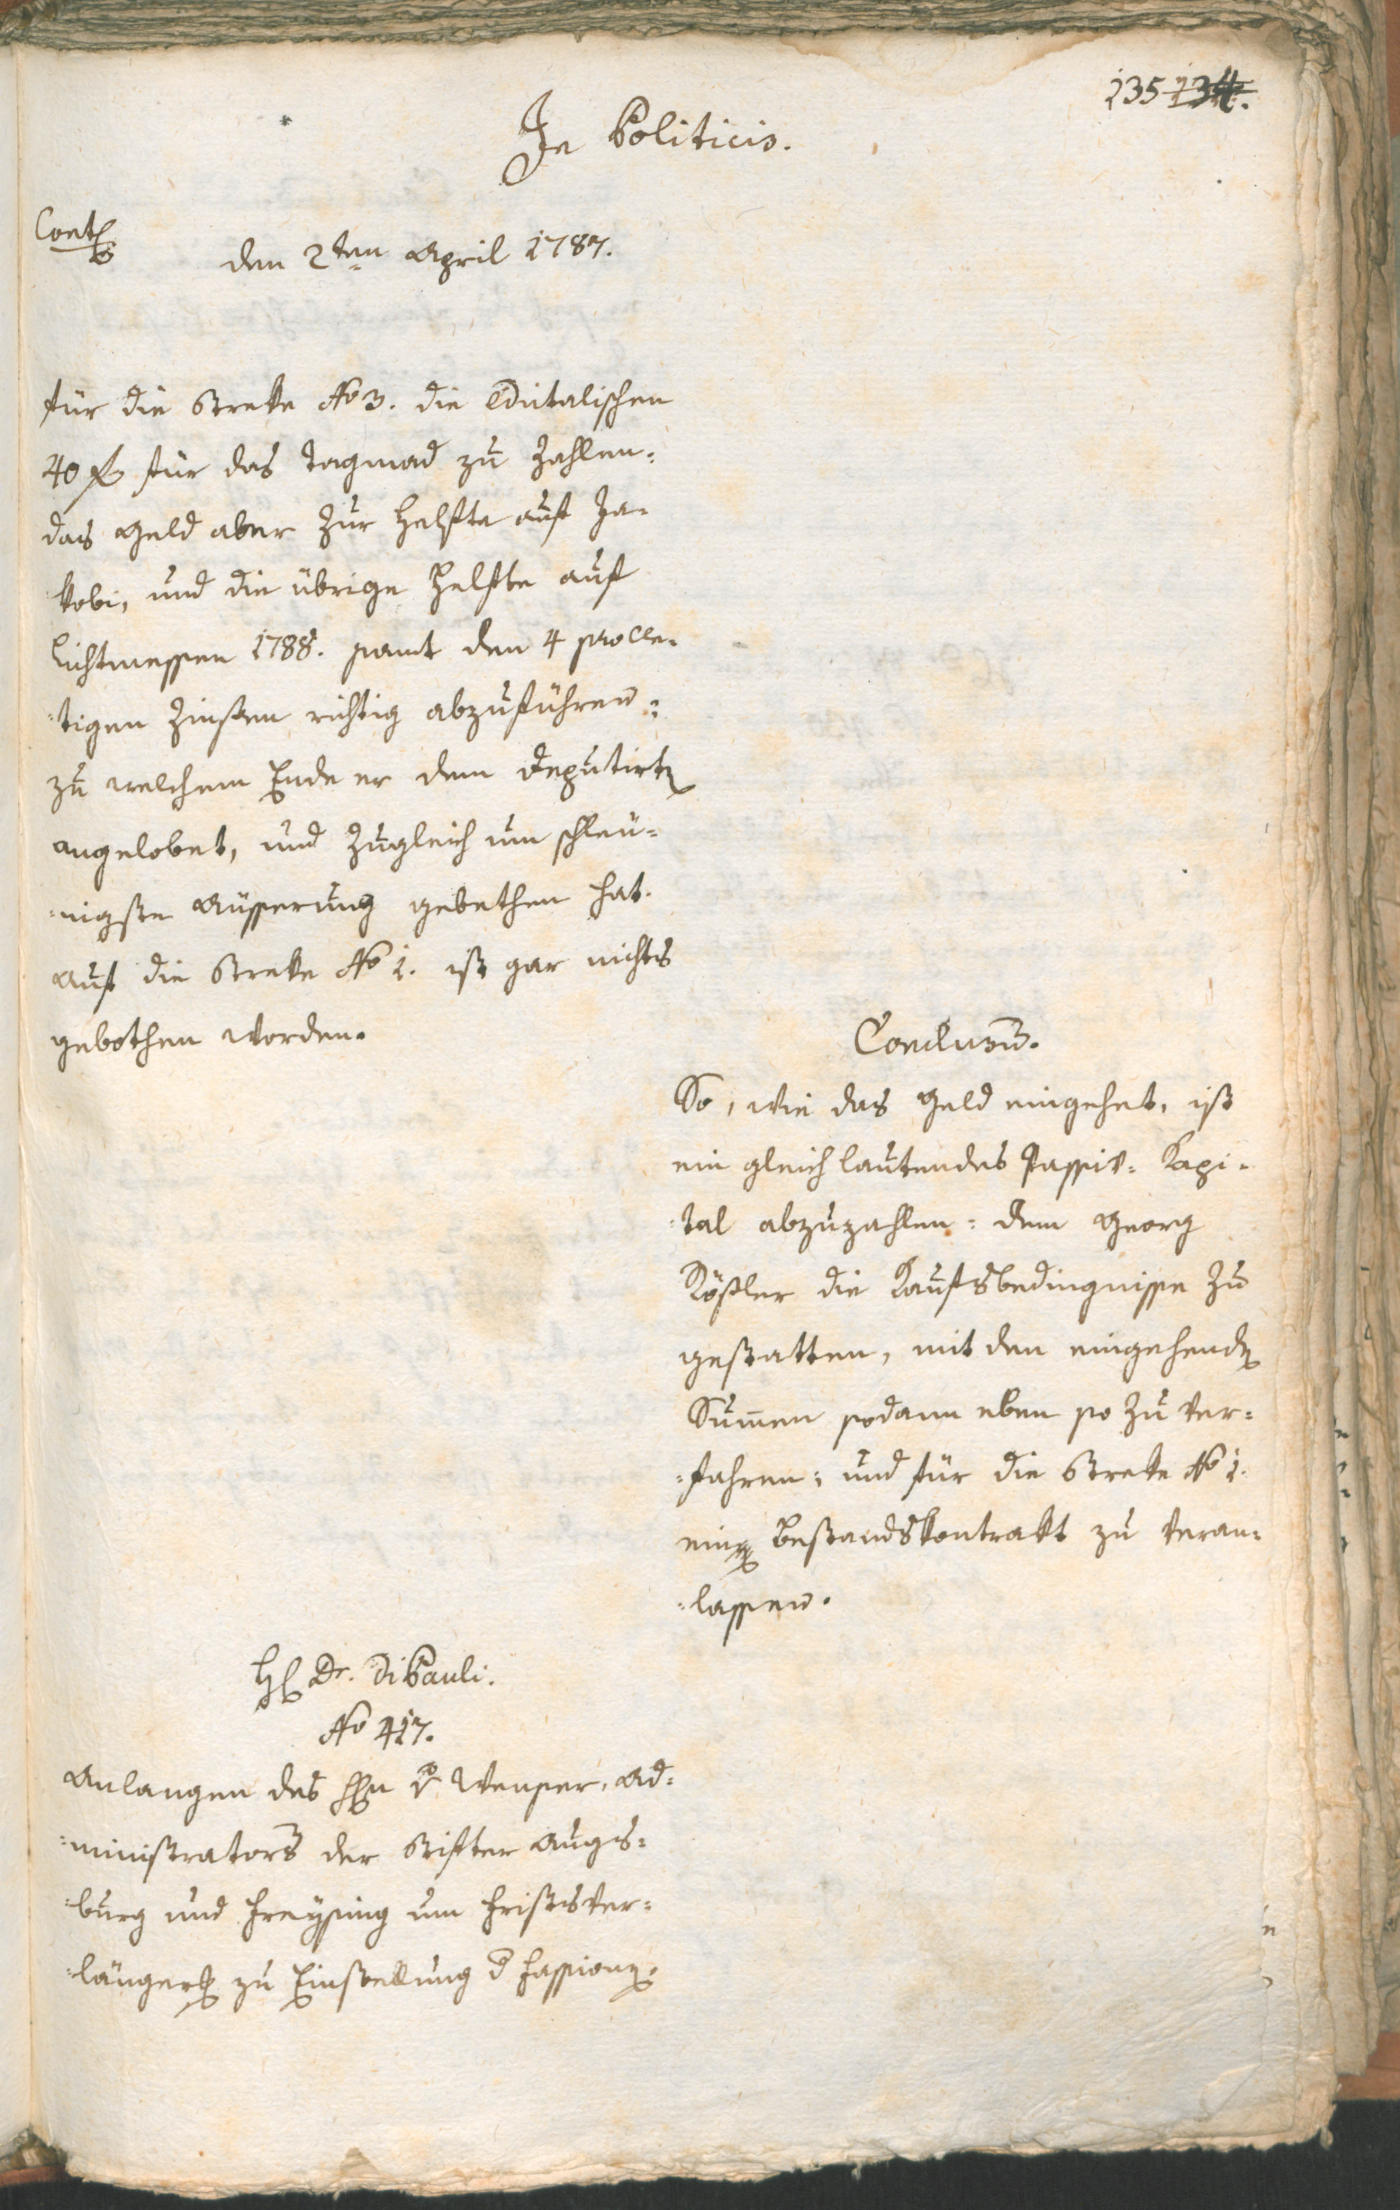 235 134.
In Politicis.
Cont
den 2ten April 1787.
für die Streke No 3. die Edictalischen
40 f für das Tagmad zu zahlen:
das Geld aber zur Helfte auf Ja-
kobi, und die übrige Helfte auf
Lichtmessen 1788. samt den 4 procen-
:tigen Zinßen richtig abzuführen:
zu welchem Ende er dem Deputirten
angelobet, und zugleich um schleu-
:nigste Äusserung gebethen hat.
Auf die Streke No 1. ist gar nichts
gebothen worden.
Conclusum.
So, wie das Geld eingehet, ist
ein gleich lautendes Passiv-Kapi-
:tal abzuzahlen: dem Georg
Kößler die Kaufsbedingnisse zu
gestatten, mit den eingehenden
Summen sodann eben so zu ver-
:fahren; und für die Streke No 1.
einen Bestandskontrakt zu veran-
:lassen.
H Dr. Di Pauli.
No 417.
Anlangen des Hn v Wenser, Ad-
:ministrators der Stifter Augs-
:burg und Freysing um Fristsver-
:längerung zu Einstellung d Fassionen.